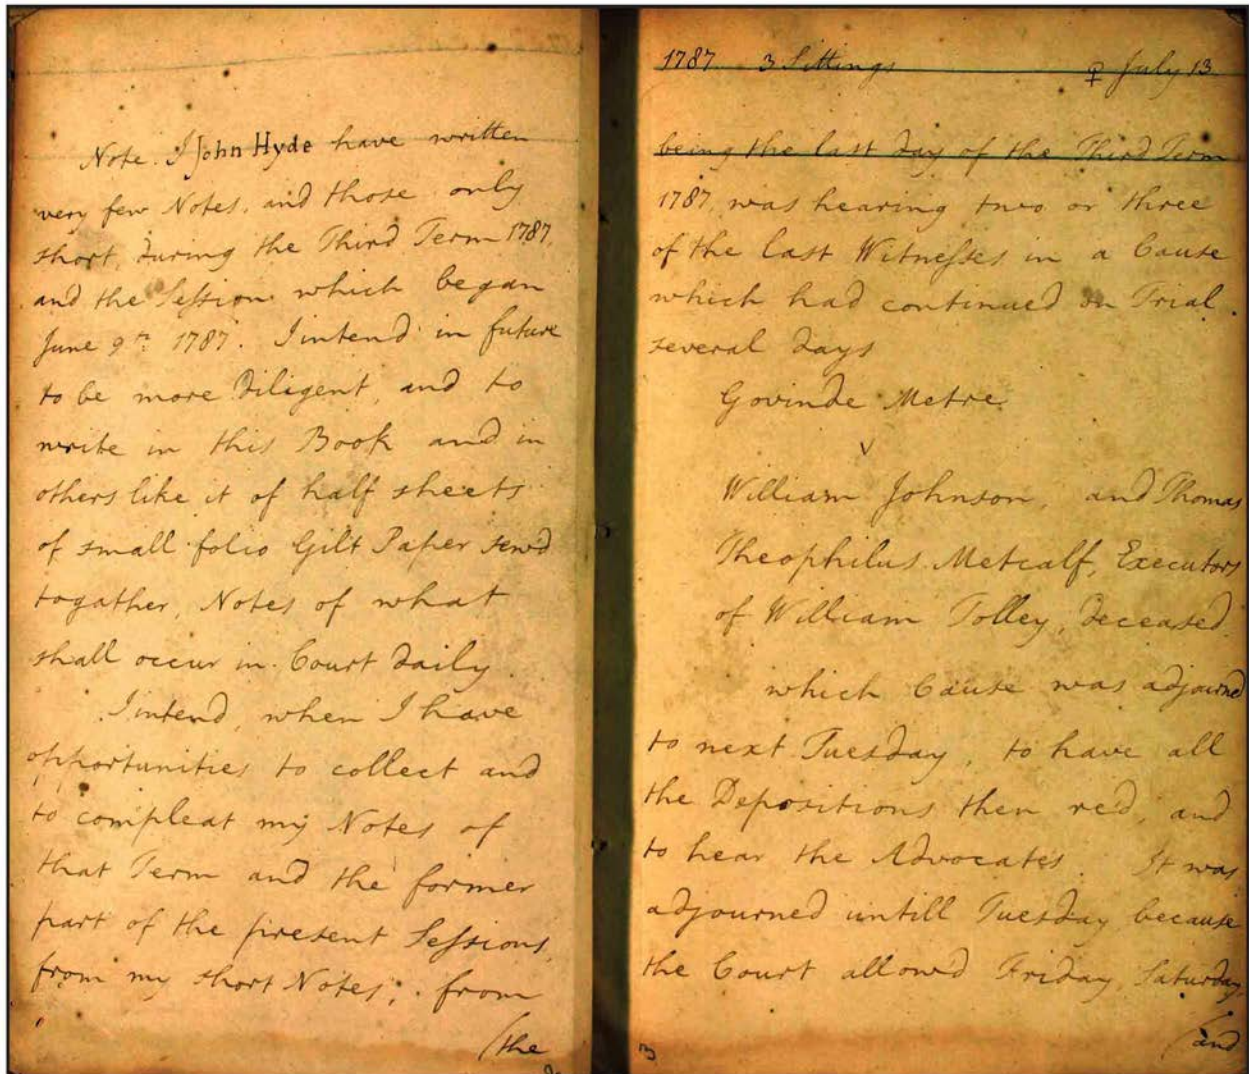 Note. I John Hyde have written
very few Notes, and those only
short, during the Third Term 1787,
and the Session which began
June 9th 1787. I intend in future
to be more diligent, and to
write in this Book and in
others like it of half sheets
of small folio Gilt Paper sew'd
togather, Notes of what
shall occur in Court daily.
I intend, when I have
opportunities to collect and
to compleat my Notes of
that Term and the former
part of the present Sessions,
from my short Notes; from
(the
1787 3 Sittings ♀ July 13.
being the last day of the Third Term
1787, was hearing two or three
of the last Witnesses in a Cause
which had continued on Trial
several days
Govinde Metre
v
William Johnson, and Thomas
Theophilus Metcalf, Executors
of William Tolley, deceased.
which Cause was adjourned
to next Tuesday, to have all
the Depositions then red, and
to hear the Advocates. It was
adjourned untill Tuesday because
the Court allowd Friday, Saturday,
(and
3